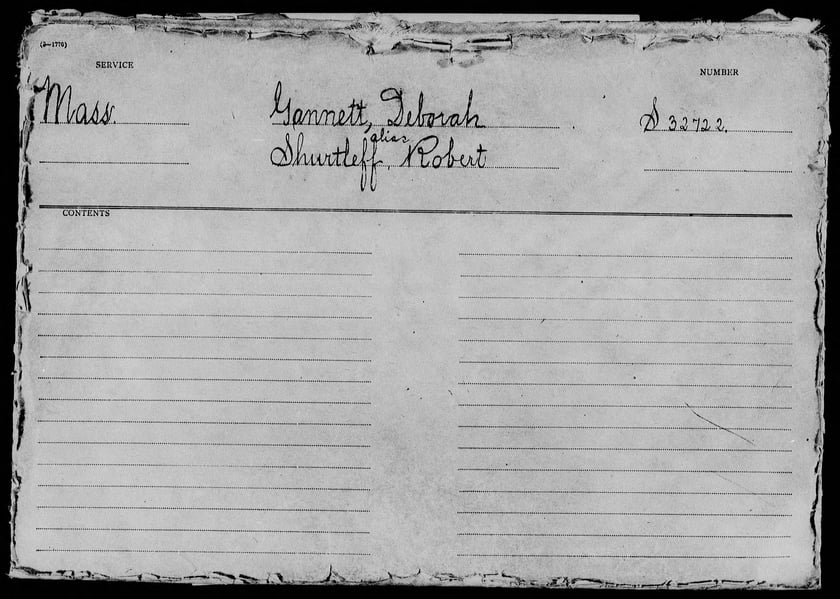 (3—1776)
SERVICE
NUMBER
Mass.
Gannett, Deborah
S 32722.
alias
Shurtleff, Robert
CONTENTS